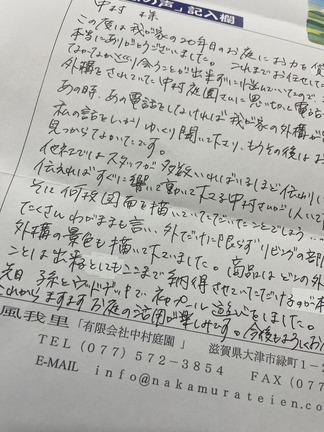 の声」記入欄
中村 様
この度は我が家の20年目のお庭にお力を貸
本当にありがとうございました。これまでお任せした
なかなかめぐり合うことが出来ずに
外構をされていた中村庭園さんに思いきって電話
あの時、あの電話をしなければ我が家の外構が
私の話をじっくり ゆっくり聞いて下さり、もうその後はお
見つからなかったです。
他社ではスタッフが多数いればいるほど伝わり
伝えればすぐに響いて動いて下さる中村さんが1人いて
それに何枚図面を描いていただいたことでしょう…
たくさんわがままも言い、外だけに限らずリビングの部
外構の景色も描いて下さいました。商品はどこの外
ことは出来たとしてもここまで納得させていただけるのが本
先日、孫とウッドデッキで初プール遊びをしました。
これからますますお庭の活用が楽しみです。今後もよろしくお
風我里「有限会社中村庭園」 滋賀県大津市緑町1-2
TEL (077) 572-3854 FAX (077
E-MAIL info@nakamurateien.com